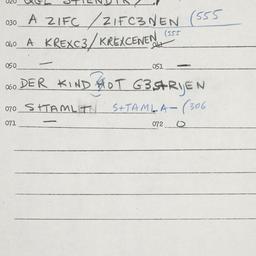 030 A ZIFC / ZIFC3NEN (555
040 A KREXC3/KREXCENEN (555
050 — 051 —
060 DER KIND HOT G3STRIJEN
070 S+TAMLT+N S+TAMLA- (306
071 — 072 O